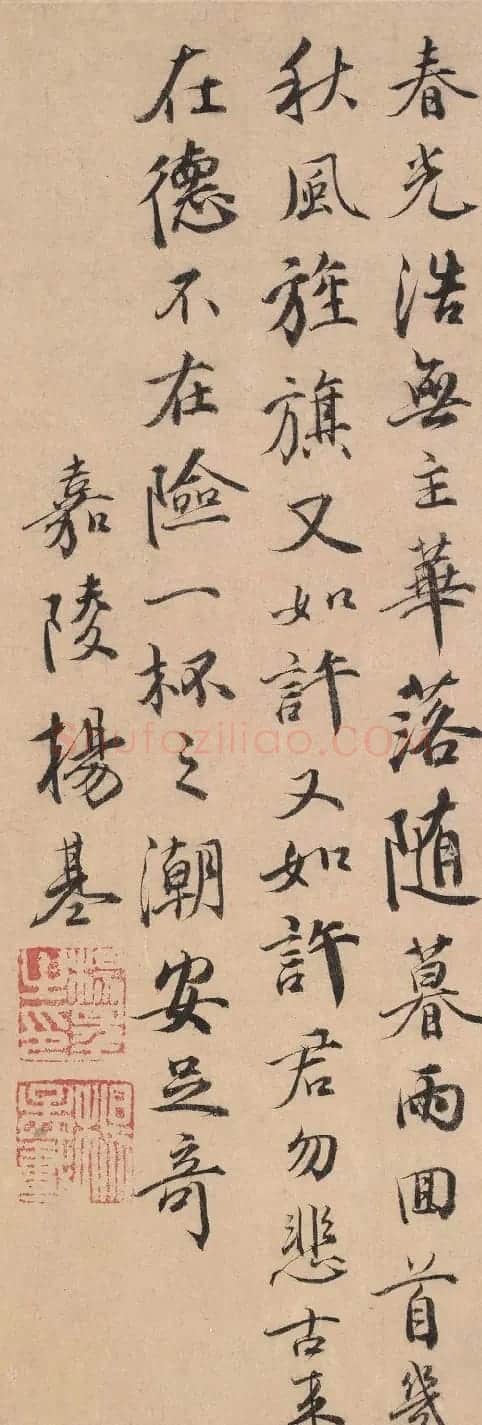 春光浩無主華落随暮雨回首幾
秋風旌旗又如許又如許君勿悲古来
在德不在險一杯之潮安足奇
嘉陵楊基
shufaziliao.com